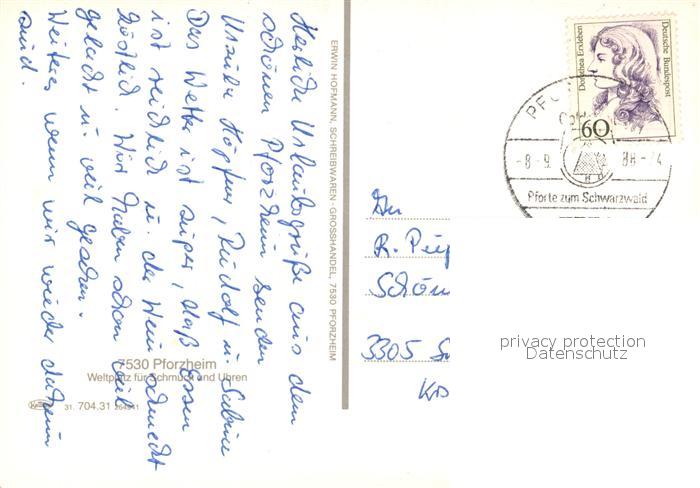 Herzliche Urlaubsgrüße aus dem
schönen Pforzheim senden
Ursula Höpfner, Rudolf u. Sabine
Das Wetter ist super, das Essen
ist reichlich u. der Wein schmeckt
köstlich. Wir haben schon viel
gelacht u. viel gesehen.
Weiteres wenn wir wieder daheim
sind.
ERWIN HOFMANN, SCHREIBWAREN - GROSSHANDEL, 7530 PFORZHEIM
7530 Pforzheim
Weltplatz für Schmuck und Uhren
31. 704.31
Dorothea Erxleben
Deutsche Bundespost
60
PFO
-8-9.
88-24
Pforte zum Schwarzwald
An
R.
Schön
3305
privacy protection
Datenschutz